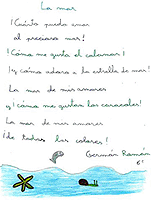 La mar
¡Cuánto puedo amar
al precioso mar!
¡Cómo me gusta el calamar!
¡y cómo adoro a la estrella de mar!
La mar de mis amores
y ¡cómo me gustan los caracoles!
La mar de mis amores
¡de todos los colores!
Germán Román
6º